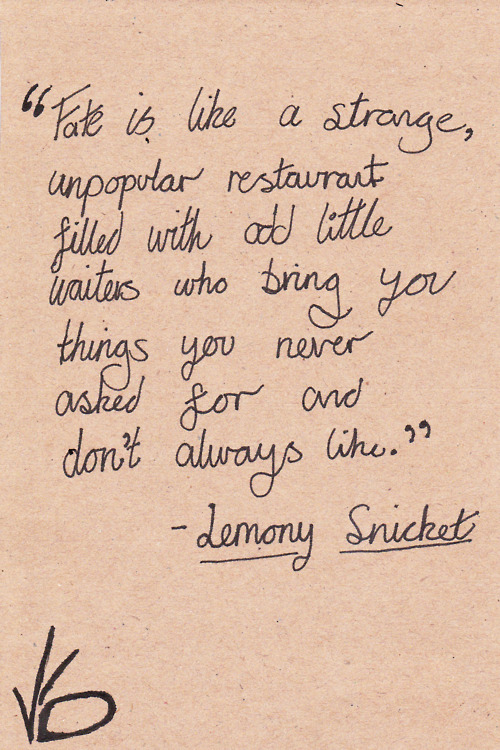 “Fate is like a strange,
unpopular restaurant
filled with odd little
waiters who bring you
things you never
asked for and
don't always like.”
- Lemony Snicket